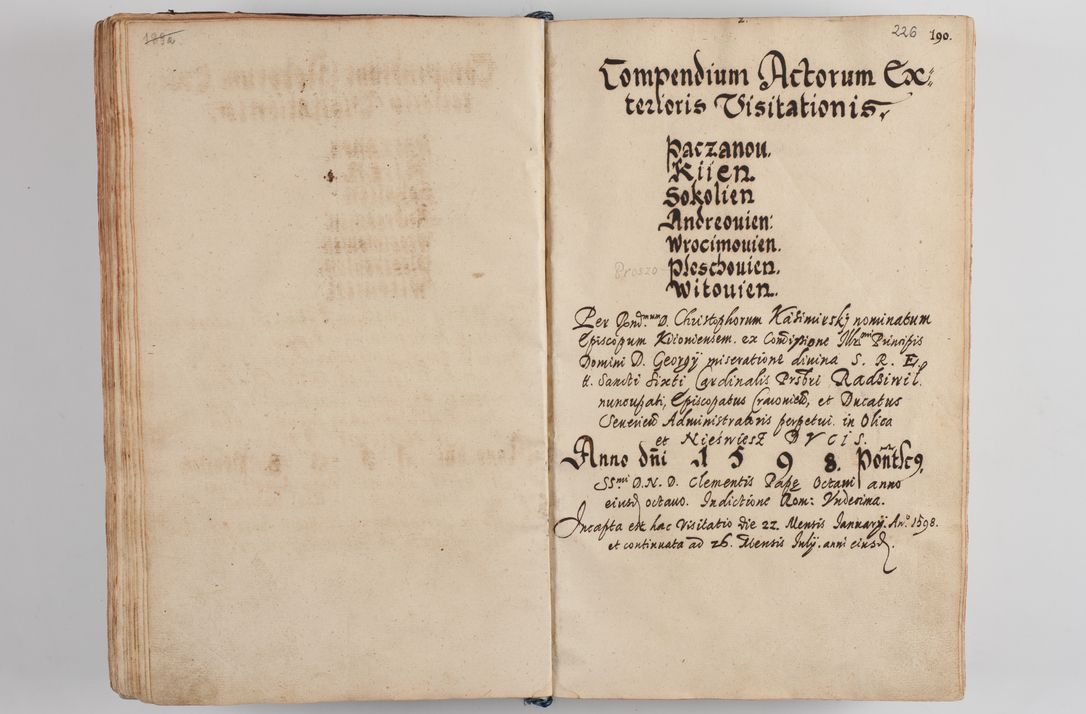 189a.
2.
226 190.
Compendium Actorum Ex=
terioris Visitationis.
Paczanou.
Kiien.
Sokolien
Andreouien:
Wrocimouien.
Proszo- Pleschouien.
Witouien.
Per Rndmum D. Christophorum Kazimirskj nominatum
Episcopum Kiouiensem. ex Comissione Illrmi Principis
Domini D. Georgÿ miseratione diuina S. R. E.
tt. Sancti Sixti Cardinalis Prsbri Radziwil.
nuncupati, Episcopatus Cracouien, et Ducatus
Seuerien Administratoris perpetui. in Olica
et Nieświesz DVCIS.
Anno dni 1598. Pontfc9.
SSmi D. N. D. Clementis Pape Octaui anno
eiusd octauo. Indictione Rom: Vndecima.
Incæpta est hac Visitatio die 22. Mensis Januarÿ. Ano. 1598.
et continuata ad 26. Mensis Julÿ. anni eiusd.